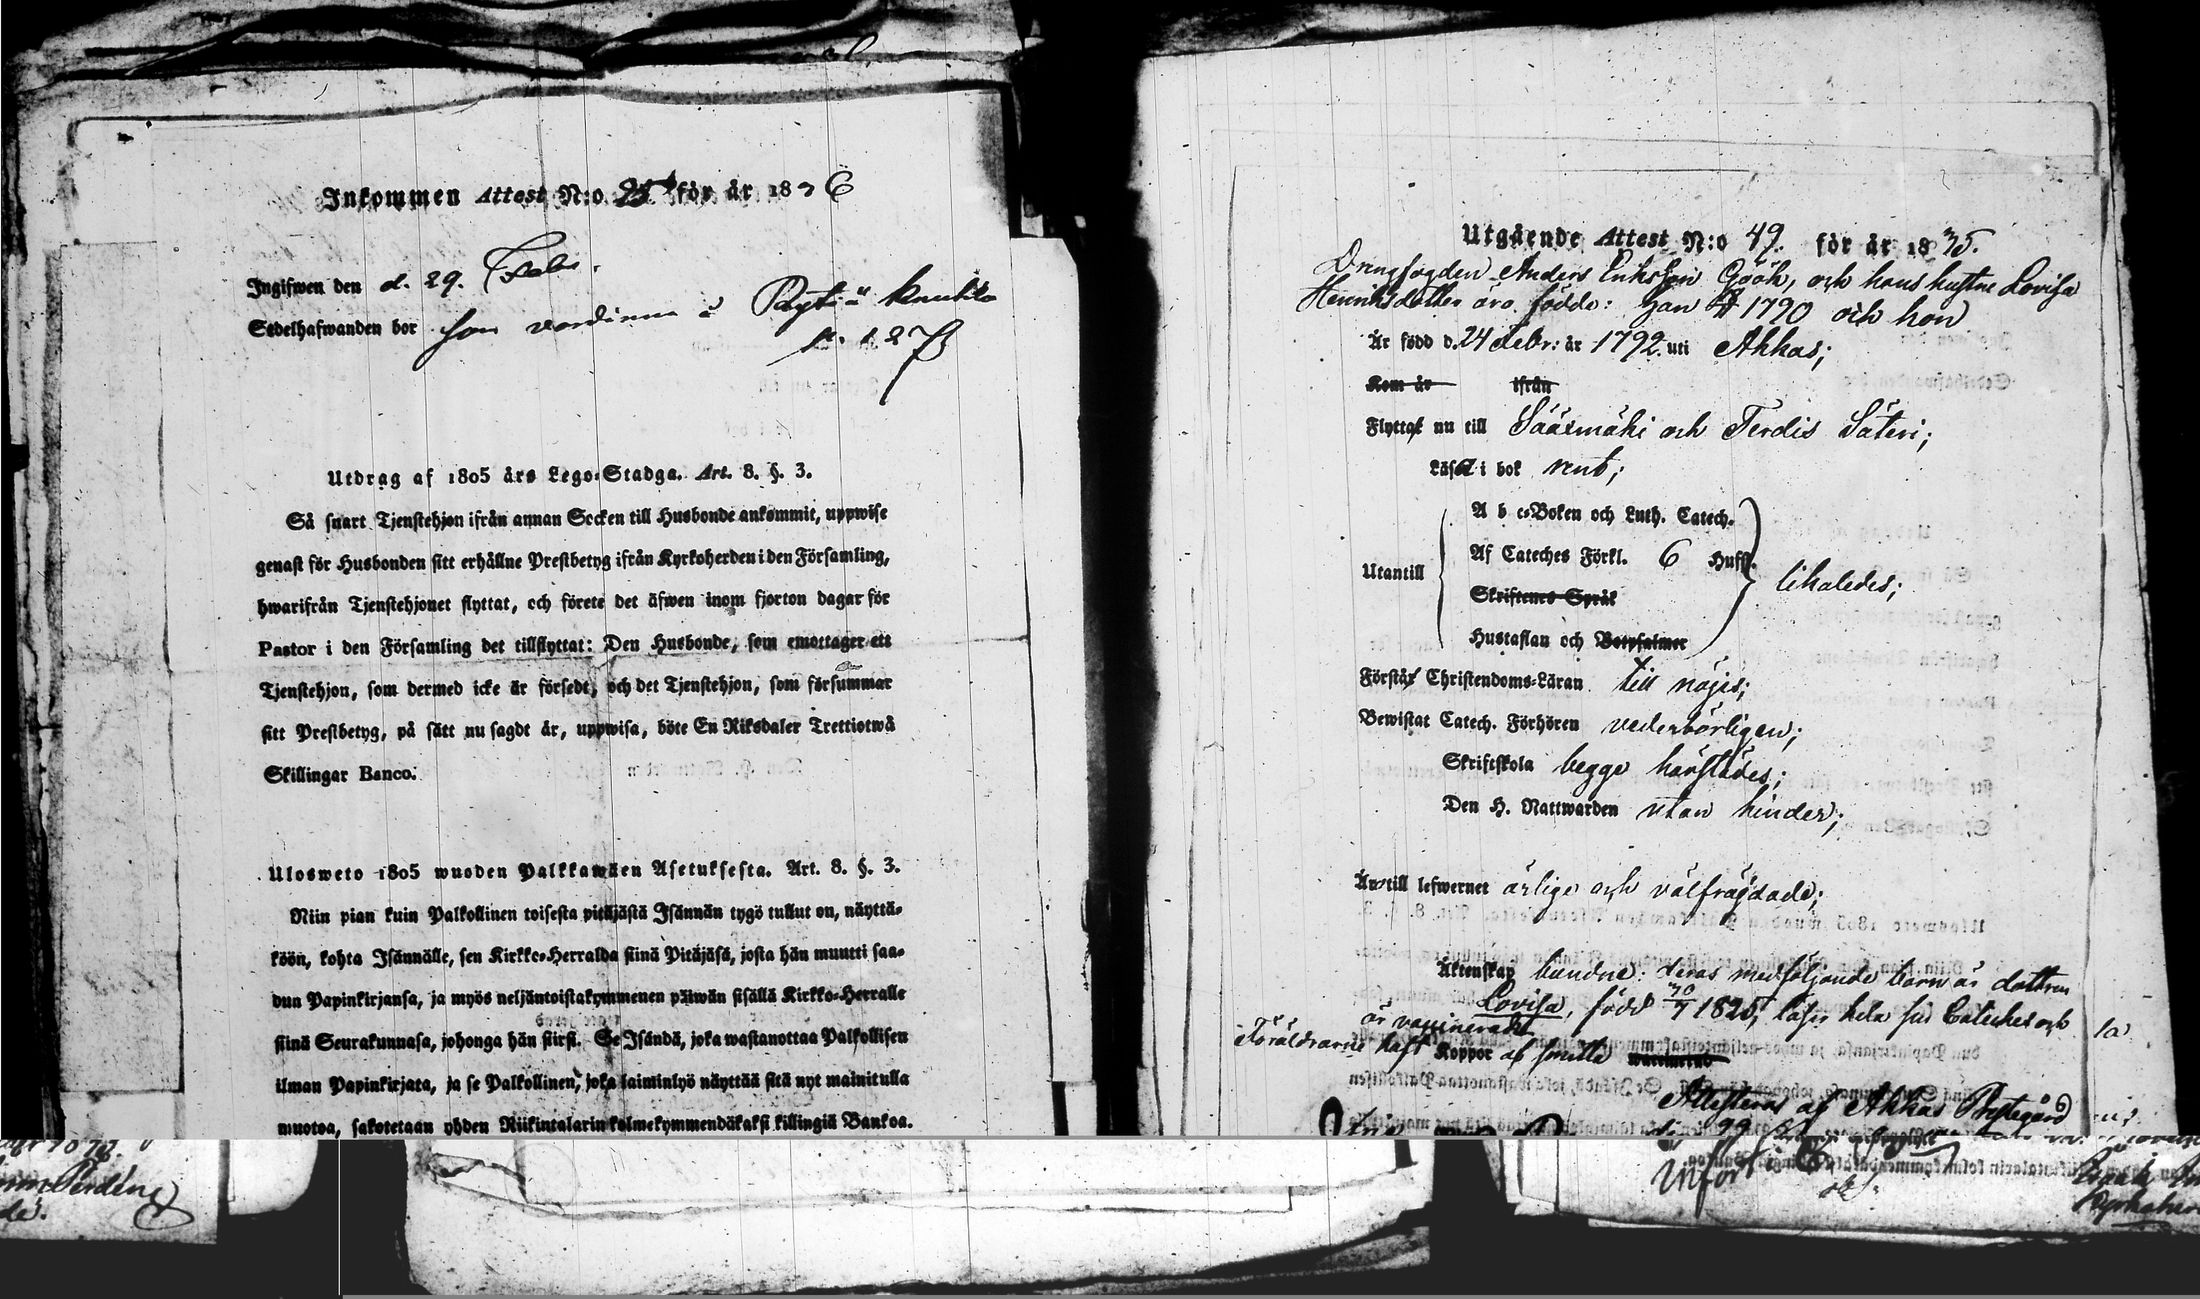 Inkommen Attest N:o 25 för år 1836
Ingifwen den d. 29. Febr.
Sedelhafwanden bor
p. 127
Utdrag af 1805 års Lego-Stadga. Art. 8. §. 3.
Så snart Tjenstehjon ifrån annan Socken till Husbonde ankommit, uppwise
genast för Husbonden sitt erhållne Prestbetyg ifrån Kyrkoherden i den Församling,
hwarifrån Tjenstehjonet flyttat, och förete det äfwen inom fjorton dagar för
Pastor i den Församling det tillflyttat: Den Husbonde, som emottager ett
Tjenstehjon, som dermed icke är försedt, och det Tjenstehjon, som försummar
sitt Prestbetyg, på sätt nu sagdt är, uppwisa, böte En Riksdaler Trettiotwå
Skillingar Banco.
Ulosweto 1805 wuoden Palkkawäen Asetuksesta. Art. 8. §. 3.
Niin pian kuin Palkollinen toisesta pitäjästä Isännän tygö tullut on, näyttä-
köön, kohta Isännälle, sen Kirkko-Herralda siinä Pitäjäsä, josta hän muutti saa-
dun Papinkirjansa, ja myös neljäntoistakymmenen päiwän sisällä Kirkko-Herralle
siinä Seurakunnasa, johonga hän siirsi. Se Isändä, joka wastanottaa Palkollisen
ilman Papinkirjata, ja se Palkollinen, joka laiminlyö näyttää sitä nyt mainitulla
muotoa, sakotetaan yhden Riikintalarin kolmekymmendäkaksi killingiä Bankoa.
Utgående Attest N:o 49. för år 1835.
Drengfogden Anders Eriksson Göök, och hans hustru Lovisa
Henriksdotter äro födde: han 1790 och hon
Är född d. 24 Febr: år 1792 uti Akkas;
Kom år ifrån
Flytta nu till Sääxmäki och Terdis Säteri;
Läsa i bok rent;
A b c-Boken och Luth. Catech.
Utantill Af Cateches Förkl. 6 Hufst. likaledes;
Skriftenes Språk
Hustaflan och Botpsalmer
Förstå Christendoms-Läran till nöjes;
Bewistat Catech. Förhören vederbörligen;
Skriftskola begge härstädes;
Den H. Nattwarden utan hinder;
till lefwernet ärlige och välfrägdade;
Äktenskap bundne: deras medföljande barn är dottren
Lovisa, född 1825, läser hela sin Cateches och
är vaccinerad
Föräldrarne haft Koppor af smitta
Attesteras af Akkas Prestegård